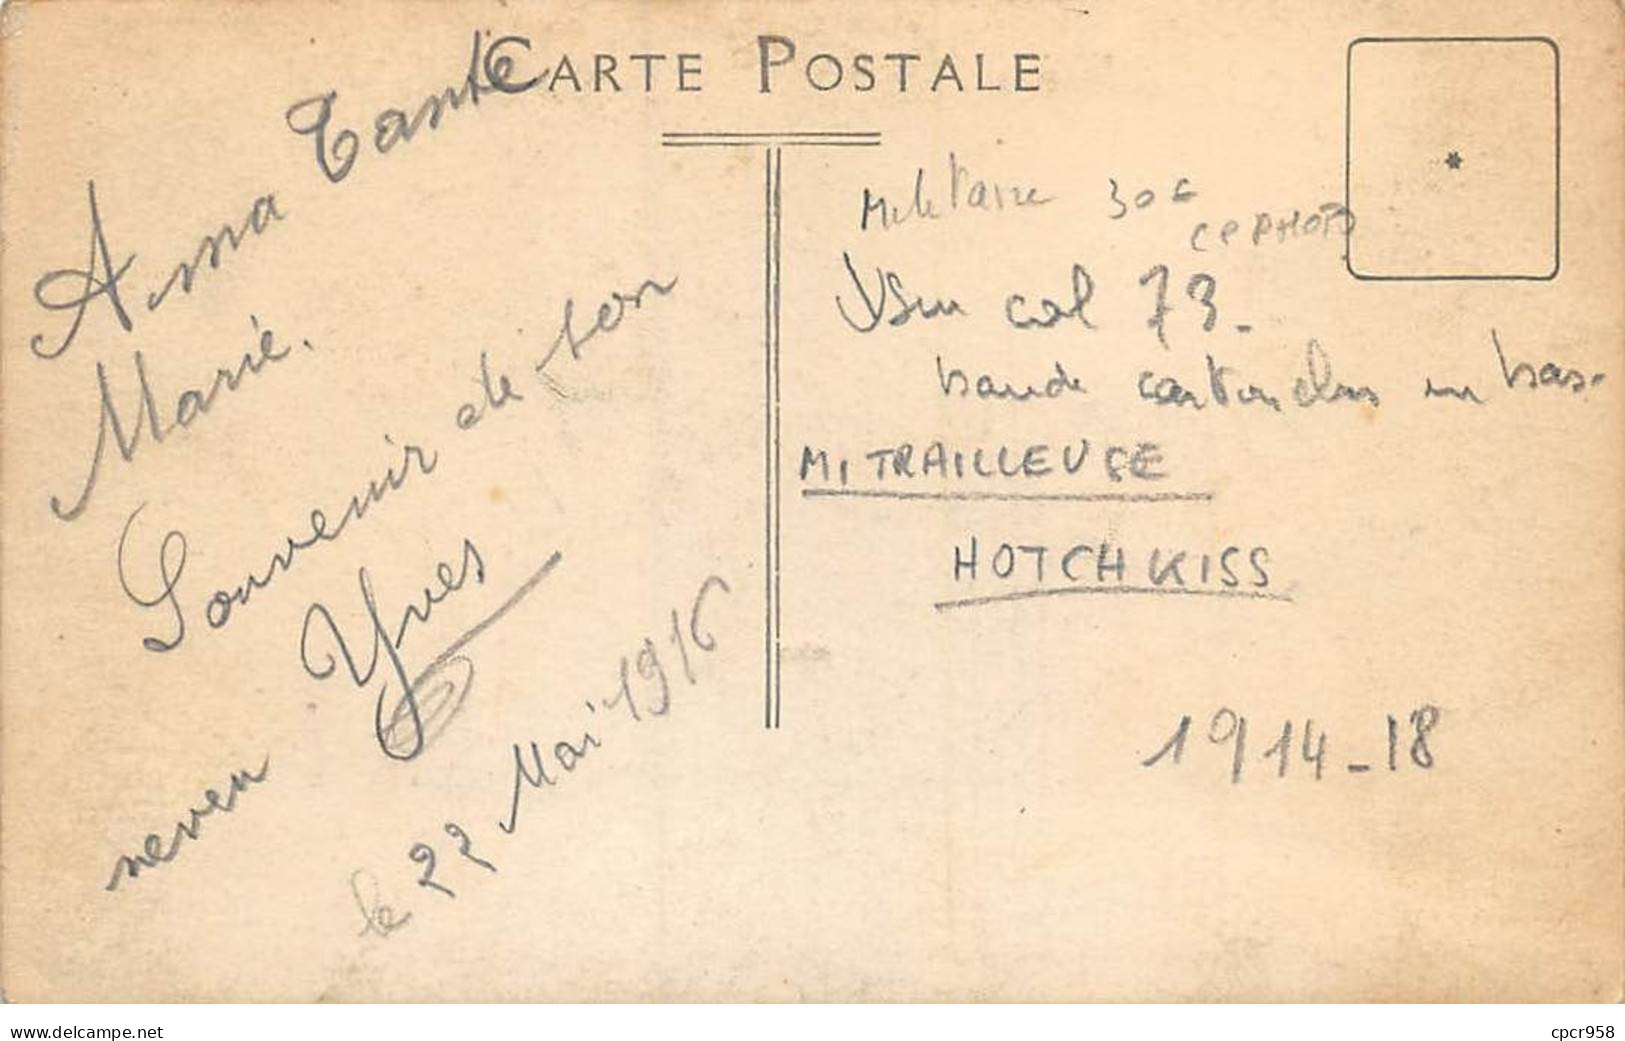 CARTE POSTALE
A ma Tante
Marie.
Souvenir de son
neveu Yves
le 22 Mai 1916
Militaire 30€
CP PHOTO
Vsur col 73.
bande cartouches en bas.
MITRAILLEUSE
HOTCHKISS
1914-18
www.delcampe.net
cpcr958